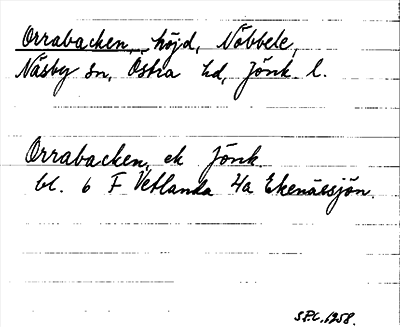 Orrabacken, höjd, Nöbbele,
Näsby sn, Östra hd, Jönk l.
Orrabacken, ek Jönk.
bl. 6 F Vetlanda 4a Ekenässjön.
S.P.C. 1958.